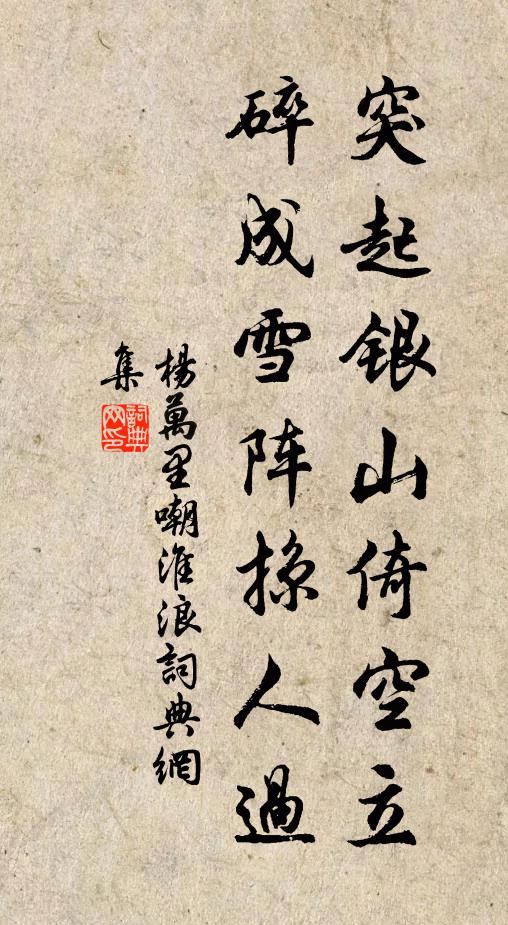 突起银山倚空立
碎成雪阵掠人過
楊萬里嘲淮浪詞典網
集
詞典
网印